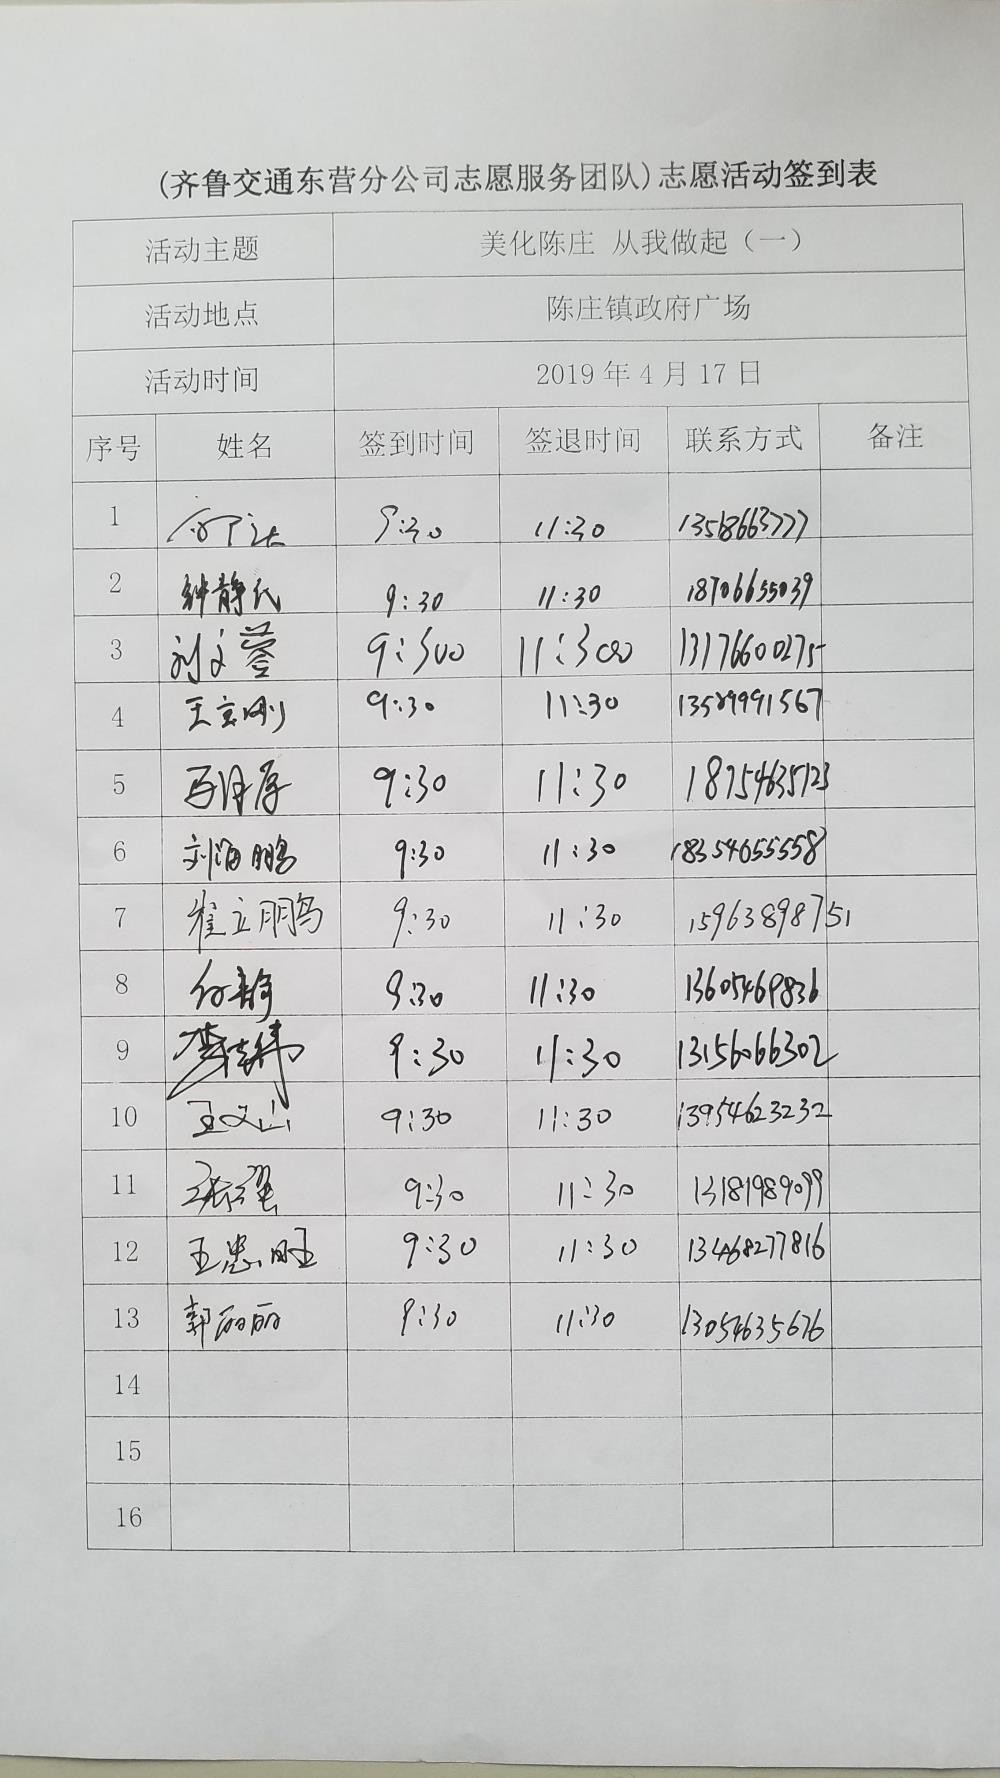 (齐鲁交通东营分公司志愿服务团队)志愿活动签到表
活动主题 美化陈庄 从我做起（一）
活动地点 陈庄镇政府广场
活动时间 2019 年 4 月 17 日
序号 姓名 签到时间 签退时间 联系方式 备注
1 9:30 11:30 13518663777
2 钟静氏 9:30 11:30 18706655039
3 刘文蓉 9:300 11:300 13176600275
4 王京刚 9:30 11:30 13589991567
5 9:30 11:30 18754635123
6 刘海鹏 9:30 11:30 18354655558
7 崔立鹏 9:30 11:30 15963898751
8 付静 9:30 11:30 13605469836
9 9:30 11:30 13156066302
10 王文山 9:30 11:30 13954623232
11 9:30 11:30 13181989099
12 王忠旺 9:30 11:30 13468277816
13 郭丽丽 9:30 11:30 13054635676
14
15
16